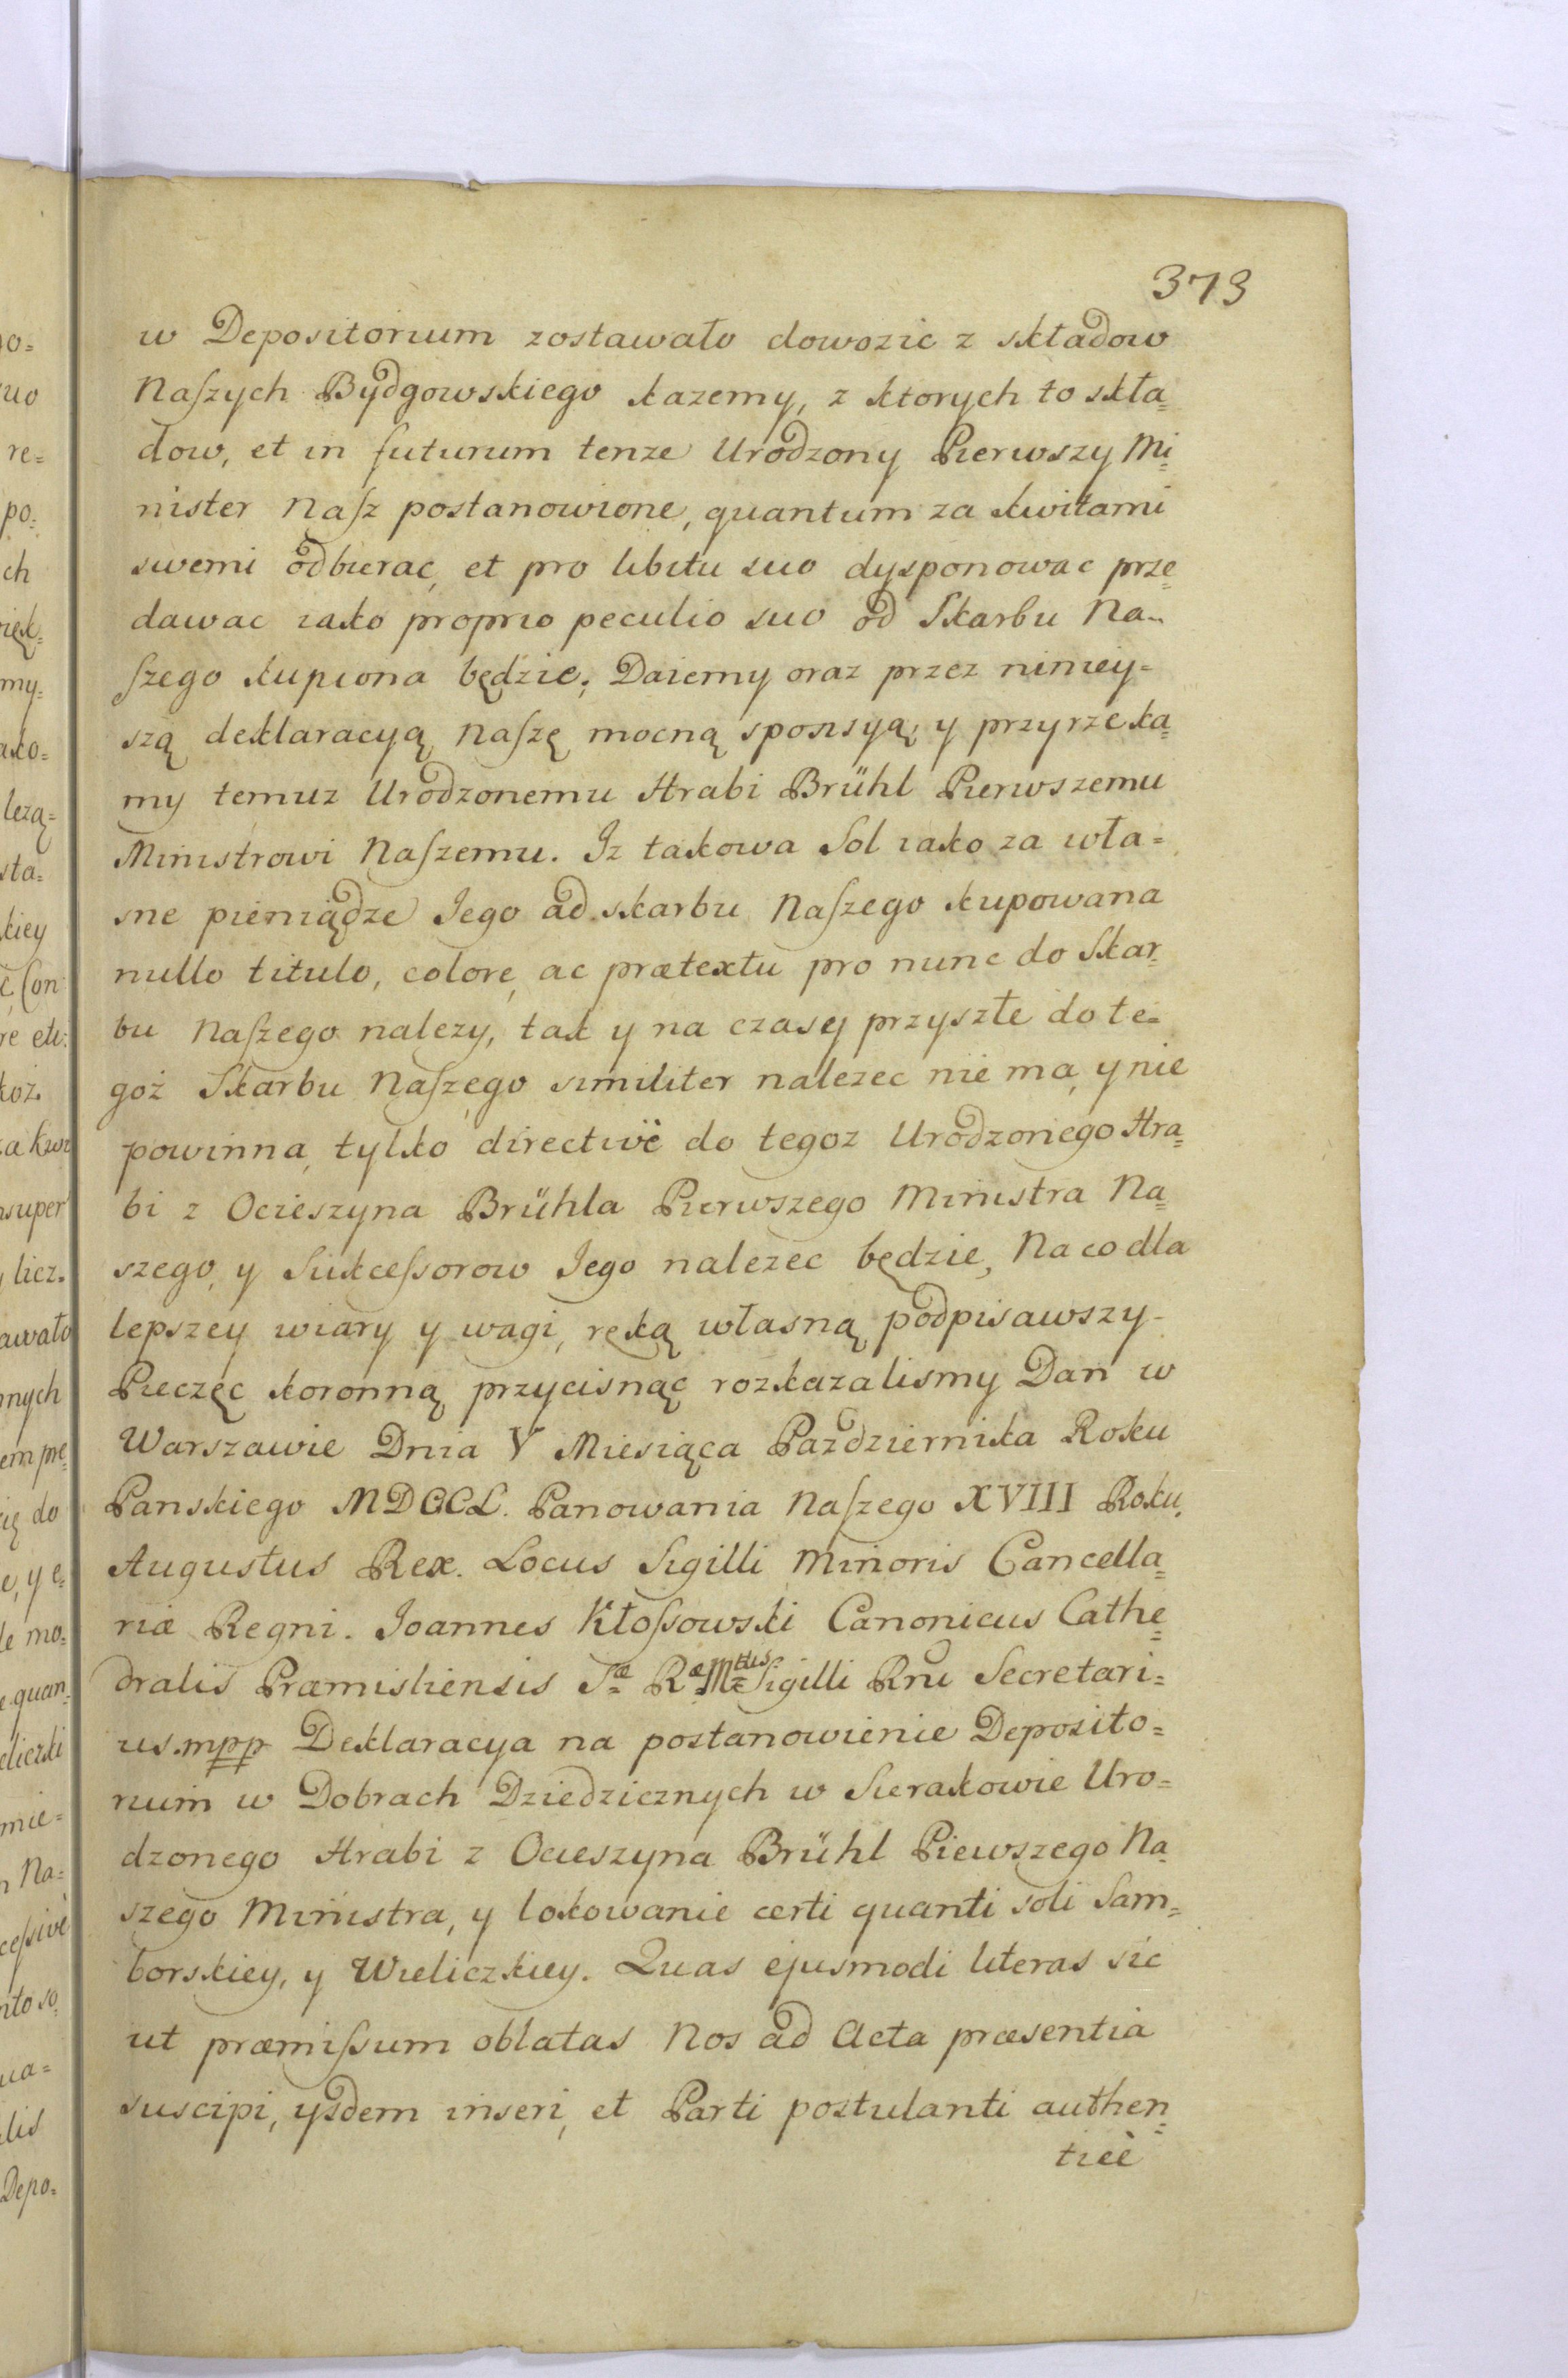 373
w Depositorium zostawało dowozic z składow
Naſzych Bydgowskiego kazemy, z ktorych to skła=
dow, et in futurum tenze Urodzony Pierwszy Mi=
nister Naſz postanowione, quantum za kwitami
swemi odbierac, et pro libitu suo dysponowac prze=
dawac iako proprio peculio suo od Skarbu Na=
ſzego kupiona będzie; Daiemy oraz przez niniey=
szą deklaracyą Naſzę mocną sponsyą, y przyrzeka=
my temuz Urodzonemu Hrabi Brühl Pierwszemu
Ministrowi Naſzemu. Iz takowa Sol iako za wła=
sne pieniądze Jego ad skarbu Naſzego kupowana
nullo titulo, colore, ac prætextu pro nunc do Skar=
bu Naſzego nalezy, tak y na czasy przyszłe do te=
goż Skarbu Naſzego similiter nalezec nie ma, y nie
powinna, tylko directivè do tegoz Urodzonego Hra=
bi z Ocieszyna Brühla Pierwszego Ministra Na=
szego, y Sukceſsorow Jego nalezec będzie, Na co dla
lepszey wiary y wagi, ręką własną podpisawszy
Pieczęc koronną przycisnąc rozkazalismy Dan w
Warszawie Dnia V Miesiąca Pazdziernika Roku
Panskiego MDCCL. Panowania Naſzego XVIII Roku.
Augustus Rex. Locus Sigilli Minoris Cancella=
riæ Regni. Joannes Kłoſsowski Canonicus Cathe=
dralis Præmisliensis Sæ Ræ Mttis Sigilli Rni Secretari=
us. mpp Deklaracya na postanowienie Deposito=
rium w Dobrach Dziedzicznych w Sierakowie Uro=
dzonego Hrabi z Ocieszyna Brühl Piewszego Na=
szego Ministra, y lokowanie certi quanti soli Sam=
borskiey, y Wieliczkiey. Quas ejusmodi literas sic
ut præmiſsum oblatas Nos ad Acta præsentia
suscipi, ysdem inseri, et Parti postulanti authen=
ticè